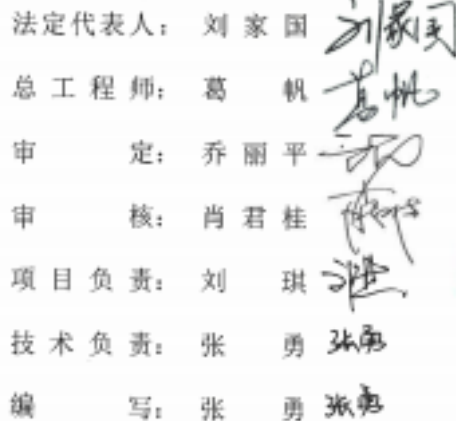 法定代表人：刘家国 刘家国
总工程师：葛帆 葛帆
审定：乔丽平
审核：肖君桂
项目负责：刘琪 刘琪
技术负责：张勇 张勇
编写：张勇 张勇